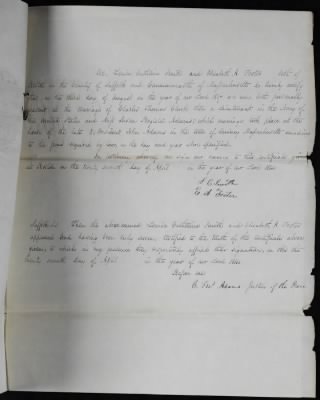 We, Louisa Catherine Smith and Elizabeth A. Foster both of
in the County of Suffolk and Commonwealth of Massachusetts do hereby certify
that on the third day of August in the year of our Lord 18 we were both personally
present at the marriage of Charles Thomas Clark then a lieutenant in the Army of
the United States and Miss Susan Boylston Adams which marriage took place at the
house of the late President John Adams in the town of Quincy Massachusetts
to the form required by law on the day and year above specified.
In we sign our names to this certificate given
at on the twenty seventh day of April in the year of our Lord
L C Smith
E. A. Foster
Suffolk ss. Then the above named Louisa Catherine Smith and Elizabeth A. Foster
appeared and having been duly sworn, certified to the truth of the certificate above
given, to which in my presence they respectively affixed their signatures, on this the
twenty seventh day of April in the year of our Lord
Before me
Adams Justice of the Peace